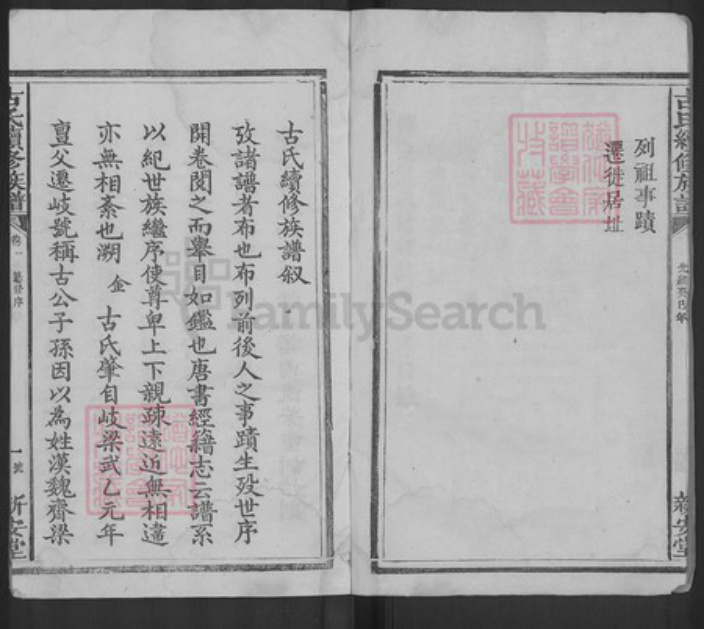 古氏續修族譜
光緒癸巳年
新安堂
列祖事蹟
遷徙居址
古氏續修族譜叙
攷諸譜者布也布列前後人之事蹟生殁世序
開卷閱之而舉目如鑑也唐書經籍志云譜系
以紀世族繼序使尊卑上下親疎遠近無相違
亦無相紊也溯 金 古氏肇自岐梁武乙元年
亶父遷岐號稱古公子孫因以為姓漢魏齊梁
古氏續修族譜
卷一
序
一號
新安堂
FamilySearch